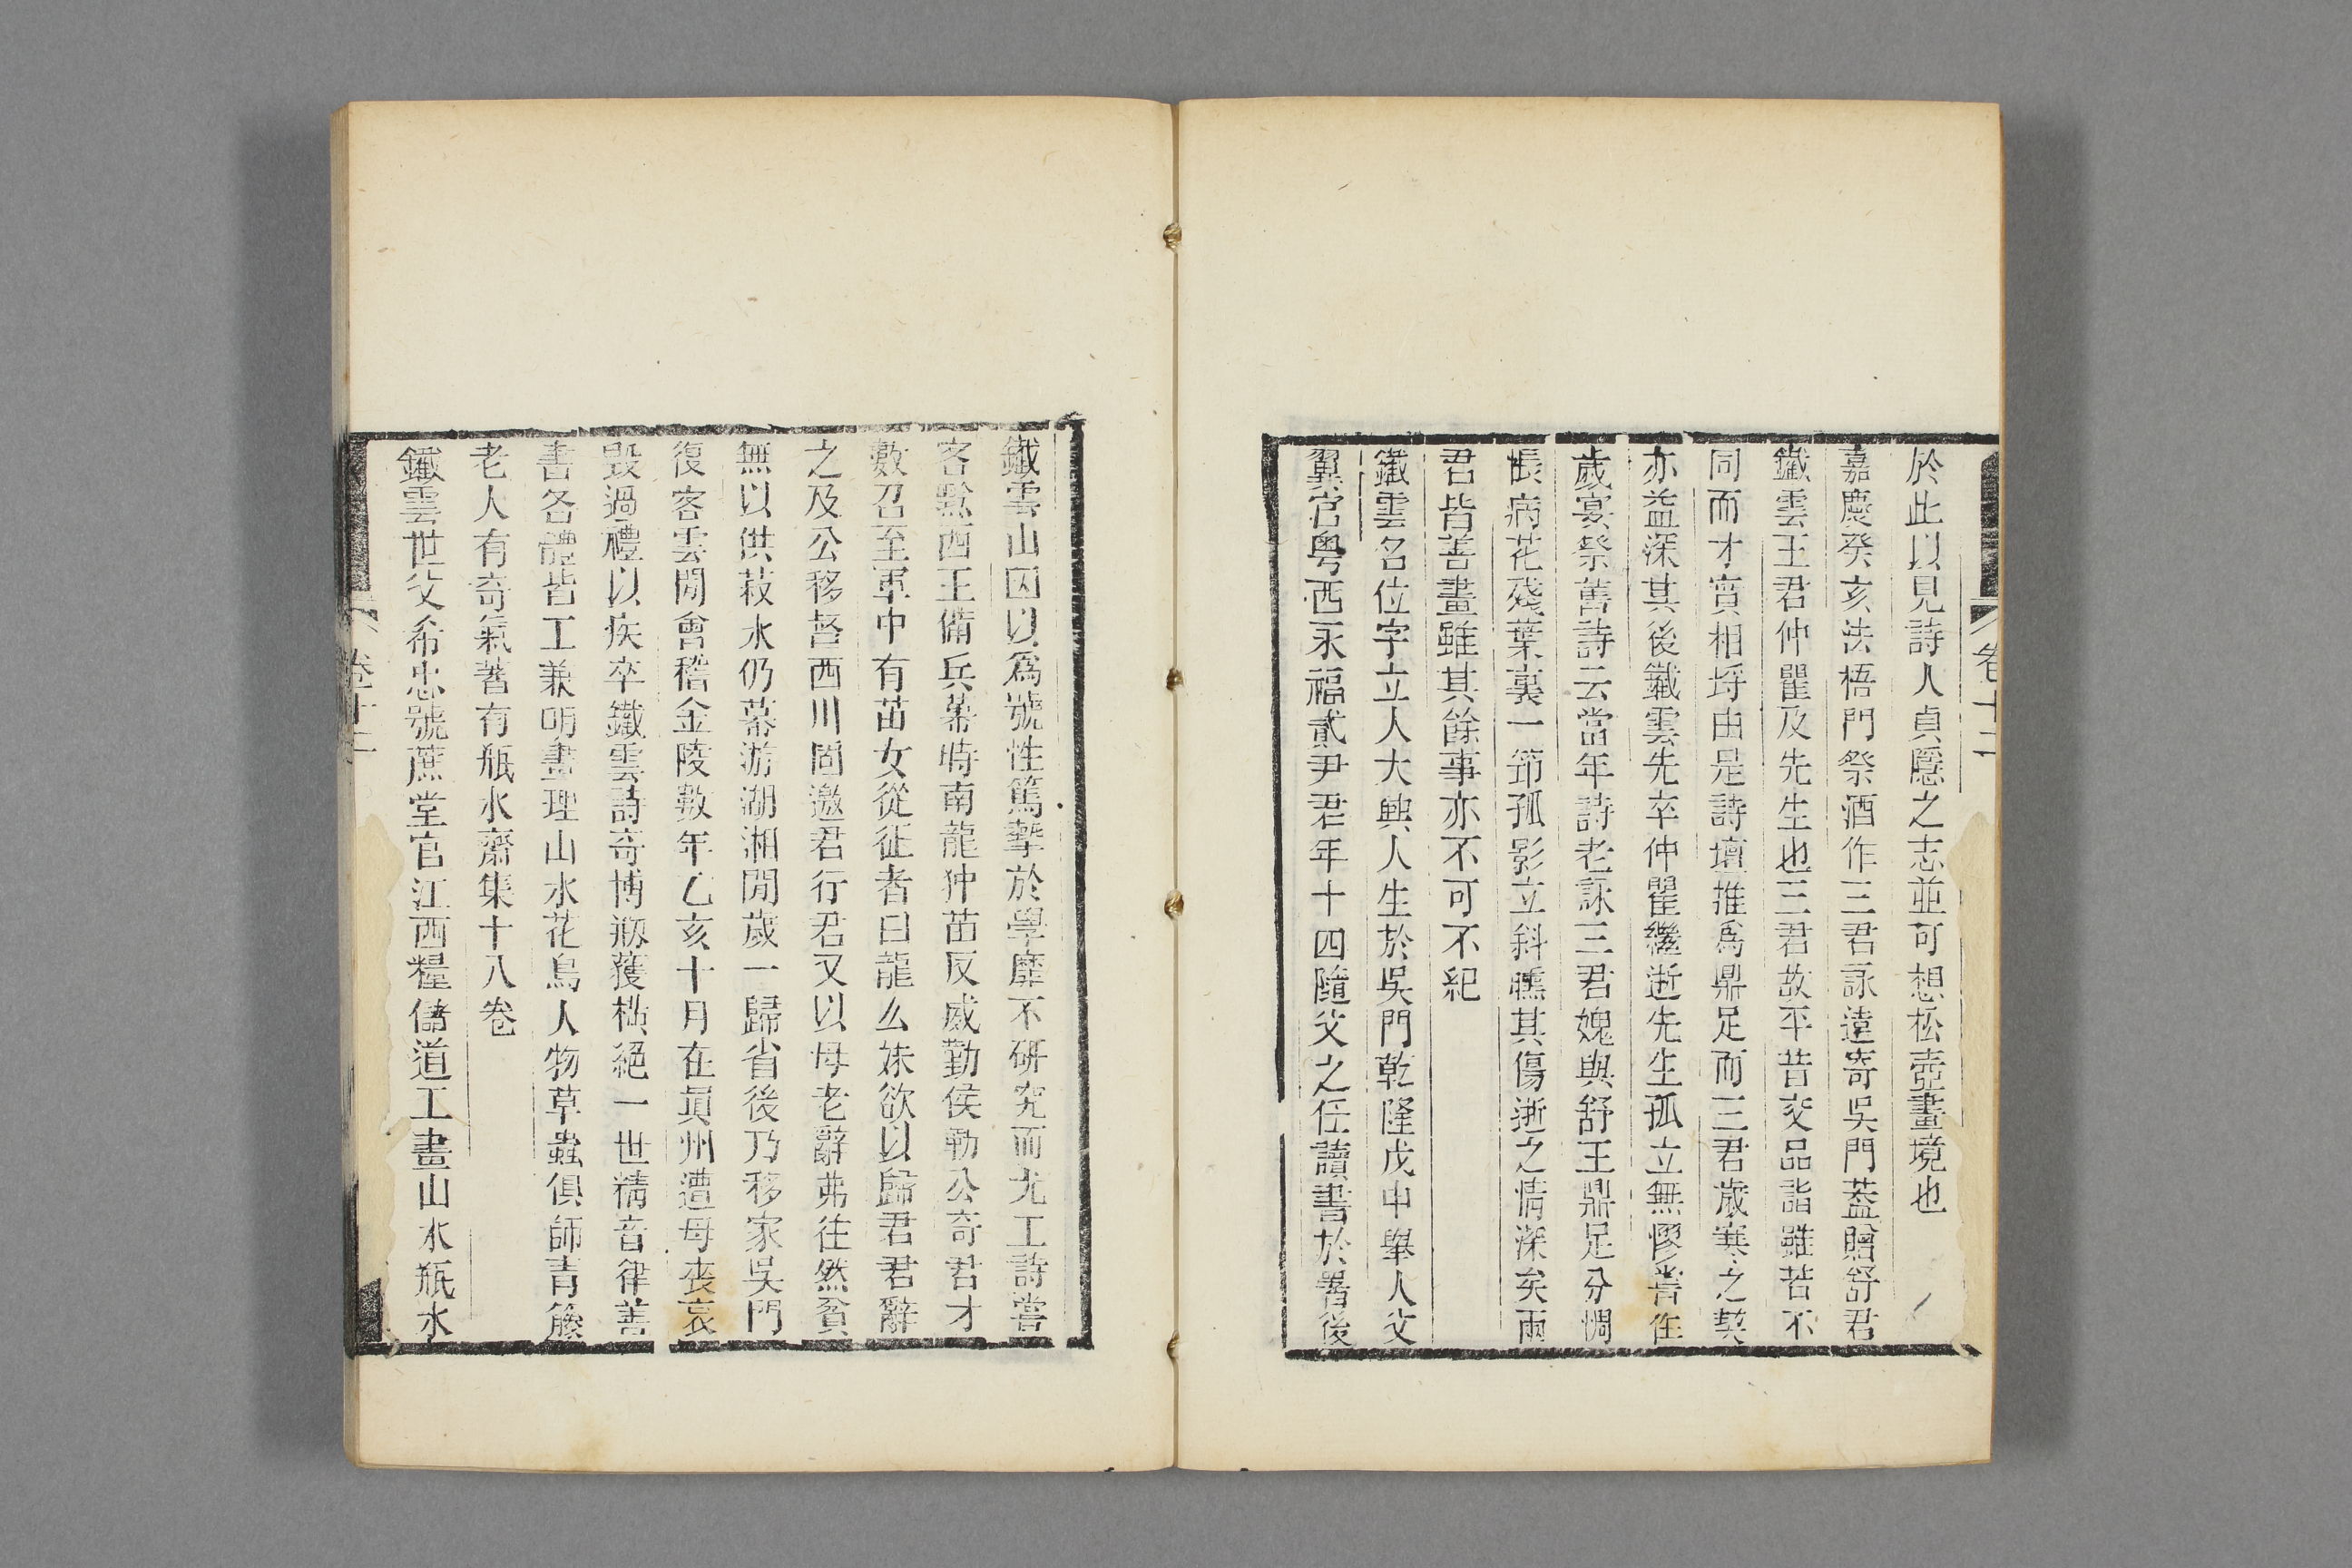 卷十二
於此以見詩人貞隱之志並可想松壺畫境也
嘉慶癸亥法梧門祭酒作三君詠遠寄吳門葢贈舒君
鐵雲王君仲瞿及先生也三君故平昔交品詣雖若不
同而才實相埒由是詩壇推爲鼎足而三君歲寒之契
亦益深其後鐵雲先卒仲瞿繼逝先生孤立無憀嘗在
歲宴祭舊詩云當年詩老詠三君媿與舒王鼎足分惆
悵病花殘葉裏一筇孤影立斜曛其傷逝之情深矣兩
君皆善畫雖其餘事亦不可不紀
鐵雲名位字立人大興人生於吳門乾隆戊申舉人父
翼官粤西永福貳尹君年十四隨父之任讀書於署後
鐵雲山因以爲號性篤摯於學靡不研究而尤工詩嘗
客黔西王備兵幕時南籠狆苗反威勤侯勒公奇君才
數召至軍中有苗女從征者曰龍么妹欲以歸君君辭
之及公移督西川固邀君行君又以母老辭弗往然貧
無以供菽水仍幕游湖湘閒歲一歸省後乃移家吳門
復客雲閒會稽金陵數年乙亥十月在眞州遭母喪哀
毀過禮以疾卒鐵雲詩奇博瓌䕶橫絕一世精音律善
書各體皆工兼明畫理山水花鳥人物草蟲俱師青籐
老人有奇氣著有瓶水齋集十八卷
鐵雲世父希忠號蔗堂官江西糧儲道工畫山水瓶水
卷十二